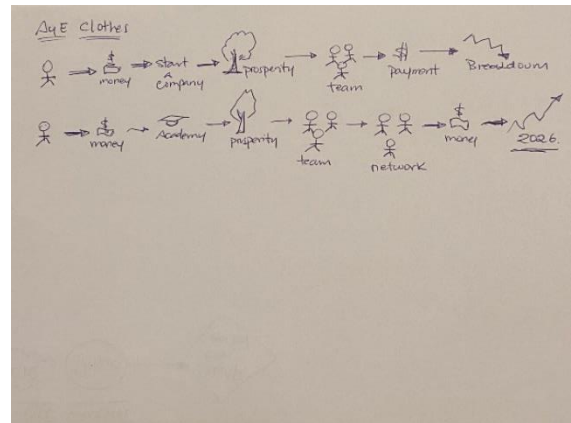 AYE Clothes
money start a company prosperity team $ payment Breakdown
money Academy prosperity team network money 2026.